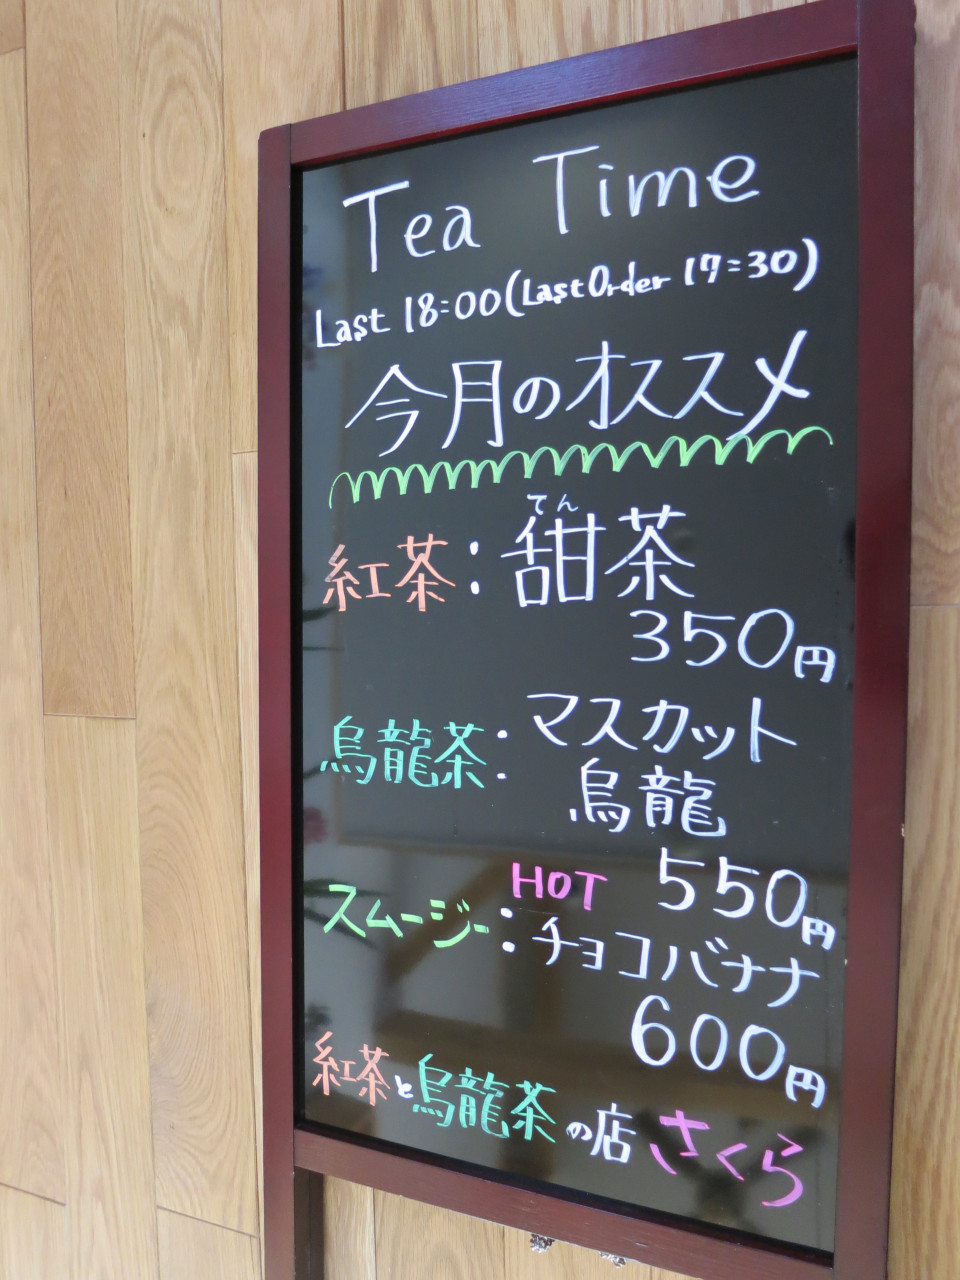 Tea Time
Last 18:00(Last Order 17:30)
今月のオススメ
てん
紅茶:甜茶
350円
烏龍茶:マスカット
烏龍
550円
HOT
スムージー:チョコバナナ
600円
紅茶と烏龍茶の店 さくら